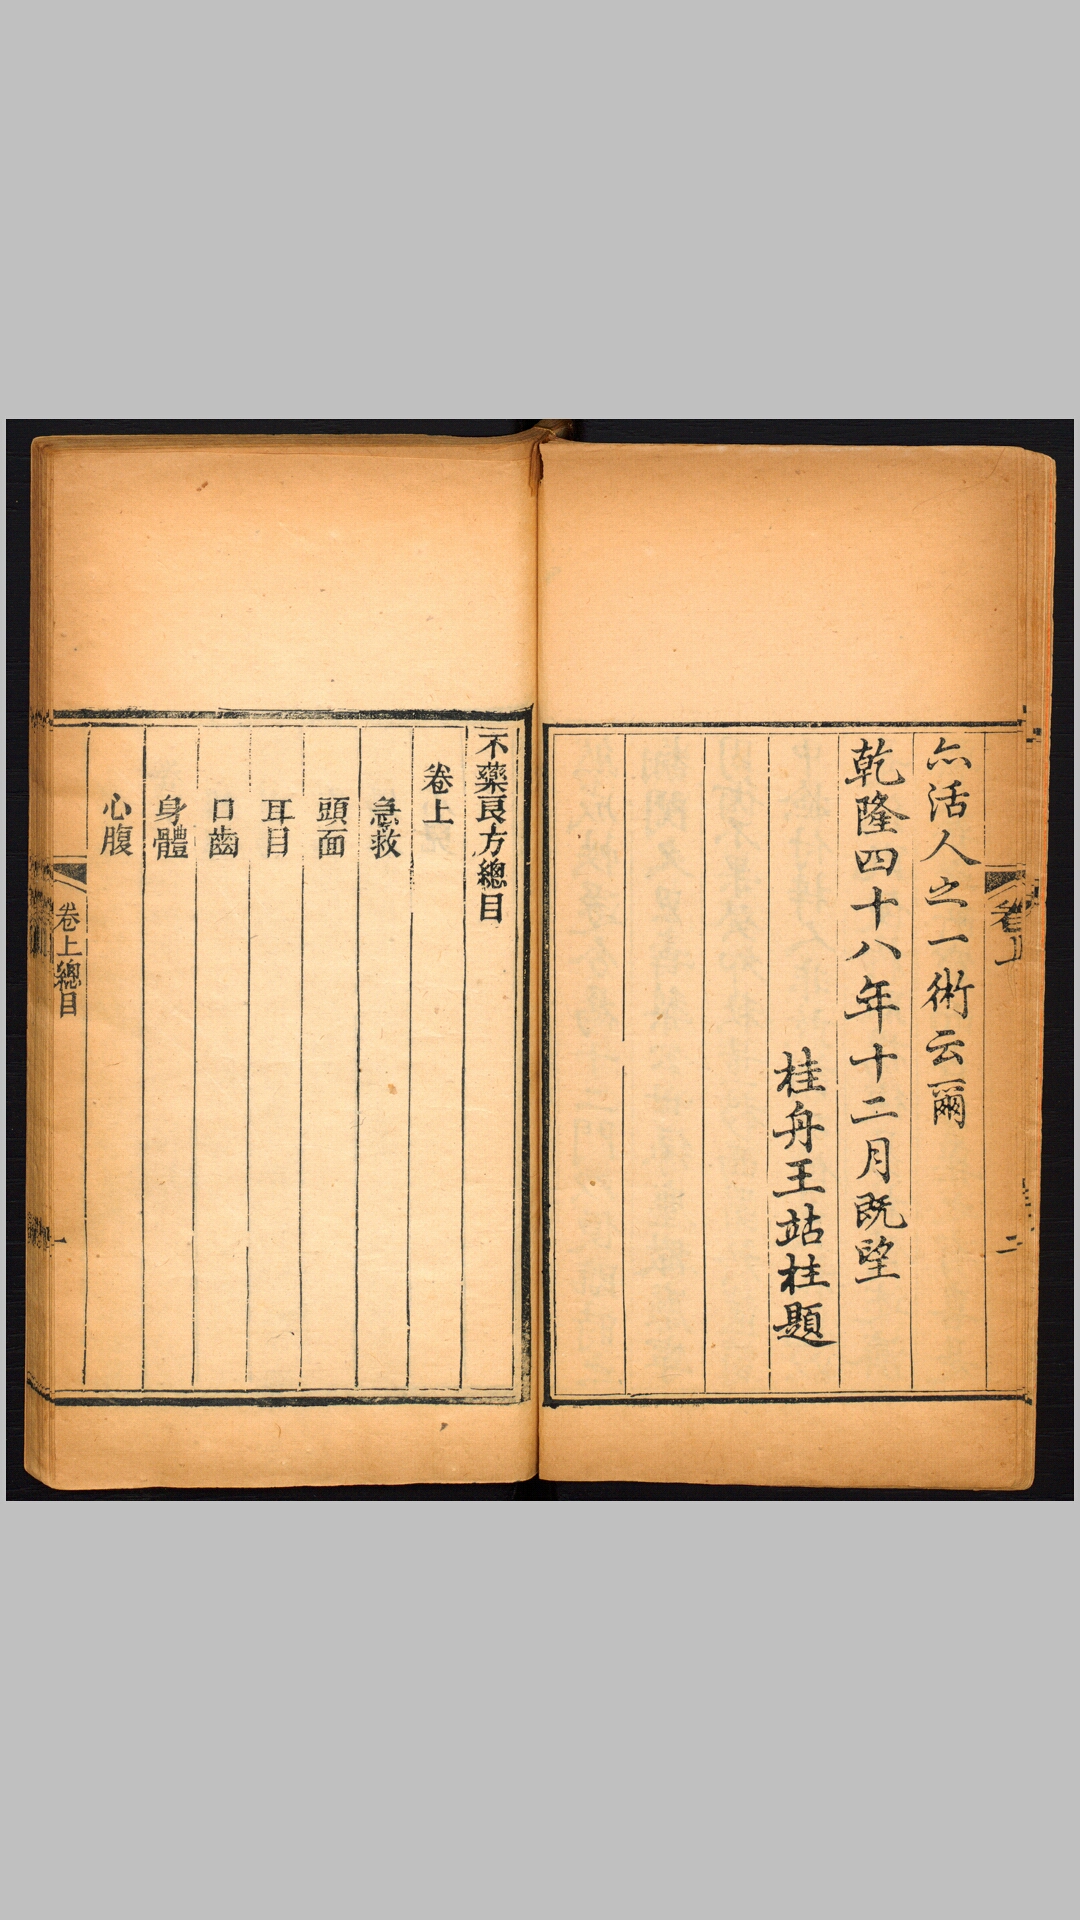 亦活人之一術云爾
乾隆四十八年十二月既望
桂舟王站柱題
卷上
二
不藥良方總目
卷上
急救
頭面
耳目
口齒
身體
心腹
卷上總目
一